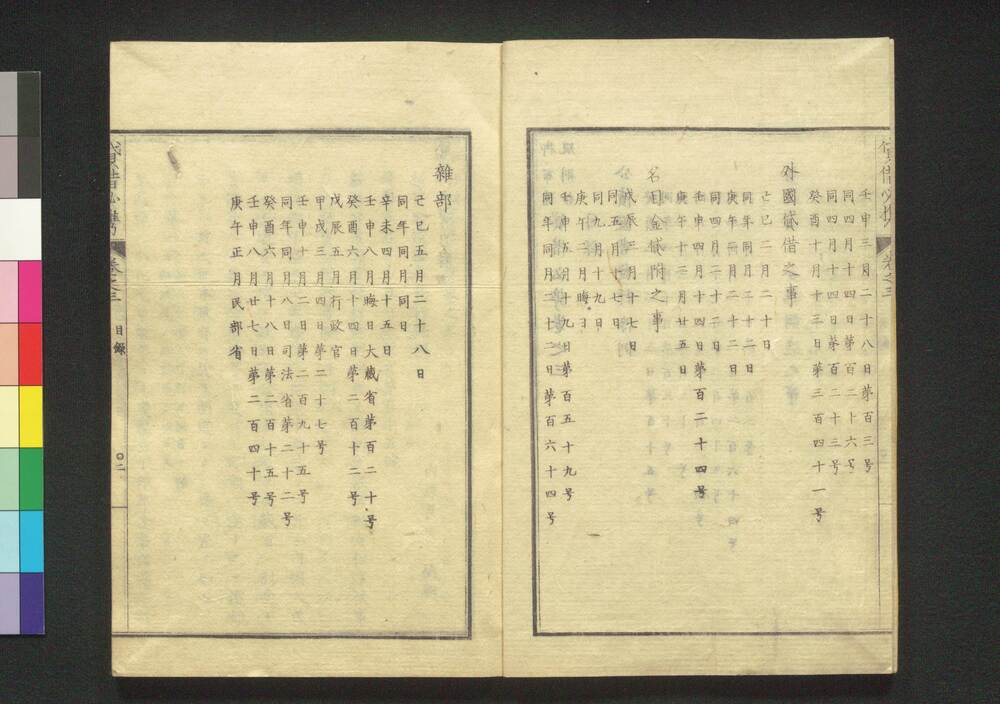 壬申三月二十八日第百三号
同四月十四日第百二十六号
同四月十四日第百二十三号
癸酉十月十三日第三百四十一号
外國貸借之事
己巳二月二十日
同年同月二十二日
庚午二月二十二日
同四月二十二日
壬申四月十四日第百二十四号
庚午十二月廿五日
名目金貸附之事
戊辰三月十七日
同五月十七日
同九月十九日
庚午三月晦日
壬申五月十九日第百五十九号
同年同月二十二日第百六十四号
雜部
己巳五月二十八日
同年同月同日
辛未四月十五日
壬申八月晦日大藏省第百二十号
癸酉六月十四日第二百十二号
戊辰五月行政官
甲戌三月四日第二十七号
壬申十月二日第二百九十五号
同年同月八日司法省第二十二号
癸酉六月十八日第二百十五号
壬申八月廿七日第二百四十号
庚午正月民部省
卷之三
目録
〇二